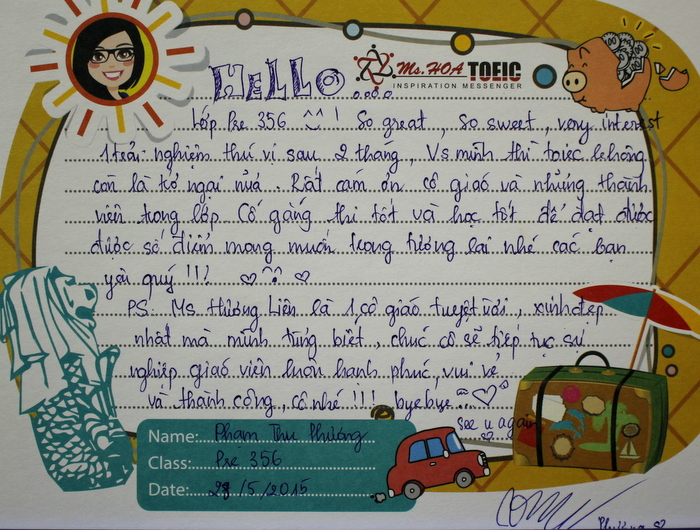 HELLO.....
Ms.HOA TOEIC
INSPIRATION MESSENGER
Lớp Pre 356 ^^! So great, so sweet, very interest
1 trải nghiệm thú vị sau 2 tháng, Vs mình thì toiec k không
còn là trở ngại nữa. Rất cảm ơn cô giáo và những thành
viên trong lớp. Cố gắng thi tốt và học tốt để đạt được
được số điểm mong muốn trong tương lai nhé các bạn
yêu quý!!! ♡ ^^ ♡
PS: Ms. Hương Liên là 1 cô giáo tuyệt vời, xinh đẹp
nhất mà mình từng biết, chúc cô sẽ tiếp tục sự
nghiệp giáo viên luôn hạnh phúc, vui vẻ
và thành công, cô nhé!!! byebye...♡
see u again
Name: Phạm Thu Phương
Class: Pre 356
Date: 28/5/2015
Phương ♡